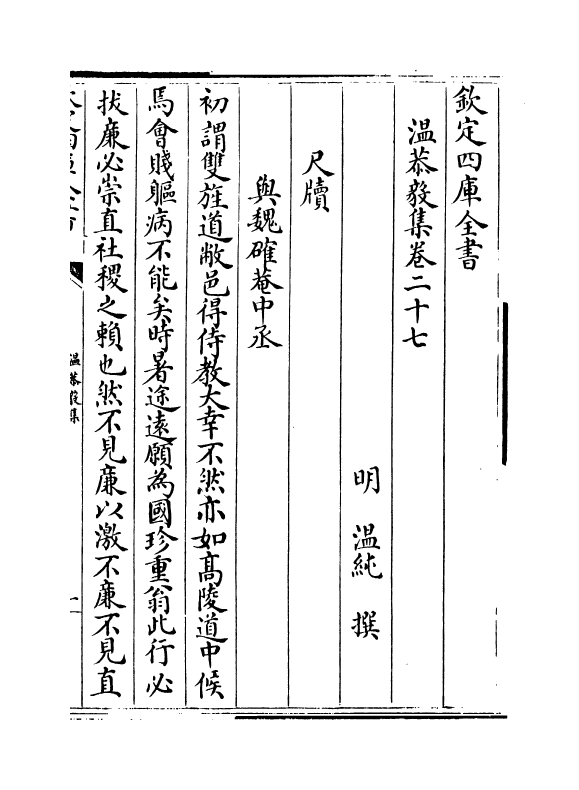 欽定四庫全書
溫恭毅集卷二十七
明　溫純　撰
尺牘
與魏確菴中丞
初謂雙旌道敝邑得侍教大幸不然亦如高陵道中候
焉會賤軀病不能矣時暑途遠願為國珍重翁此行必
拔廉必崇直社稷之賴也然不見廉以激不廉不見直
溫恭毅集
一